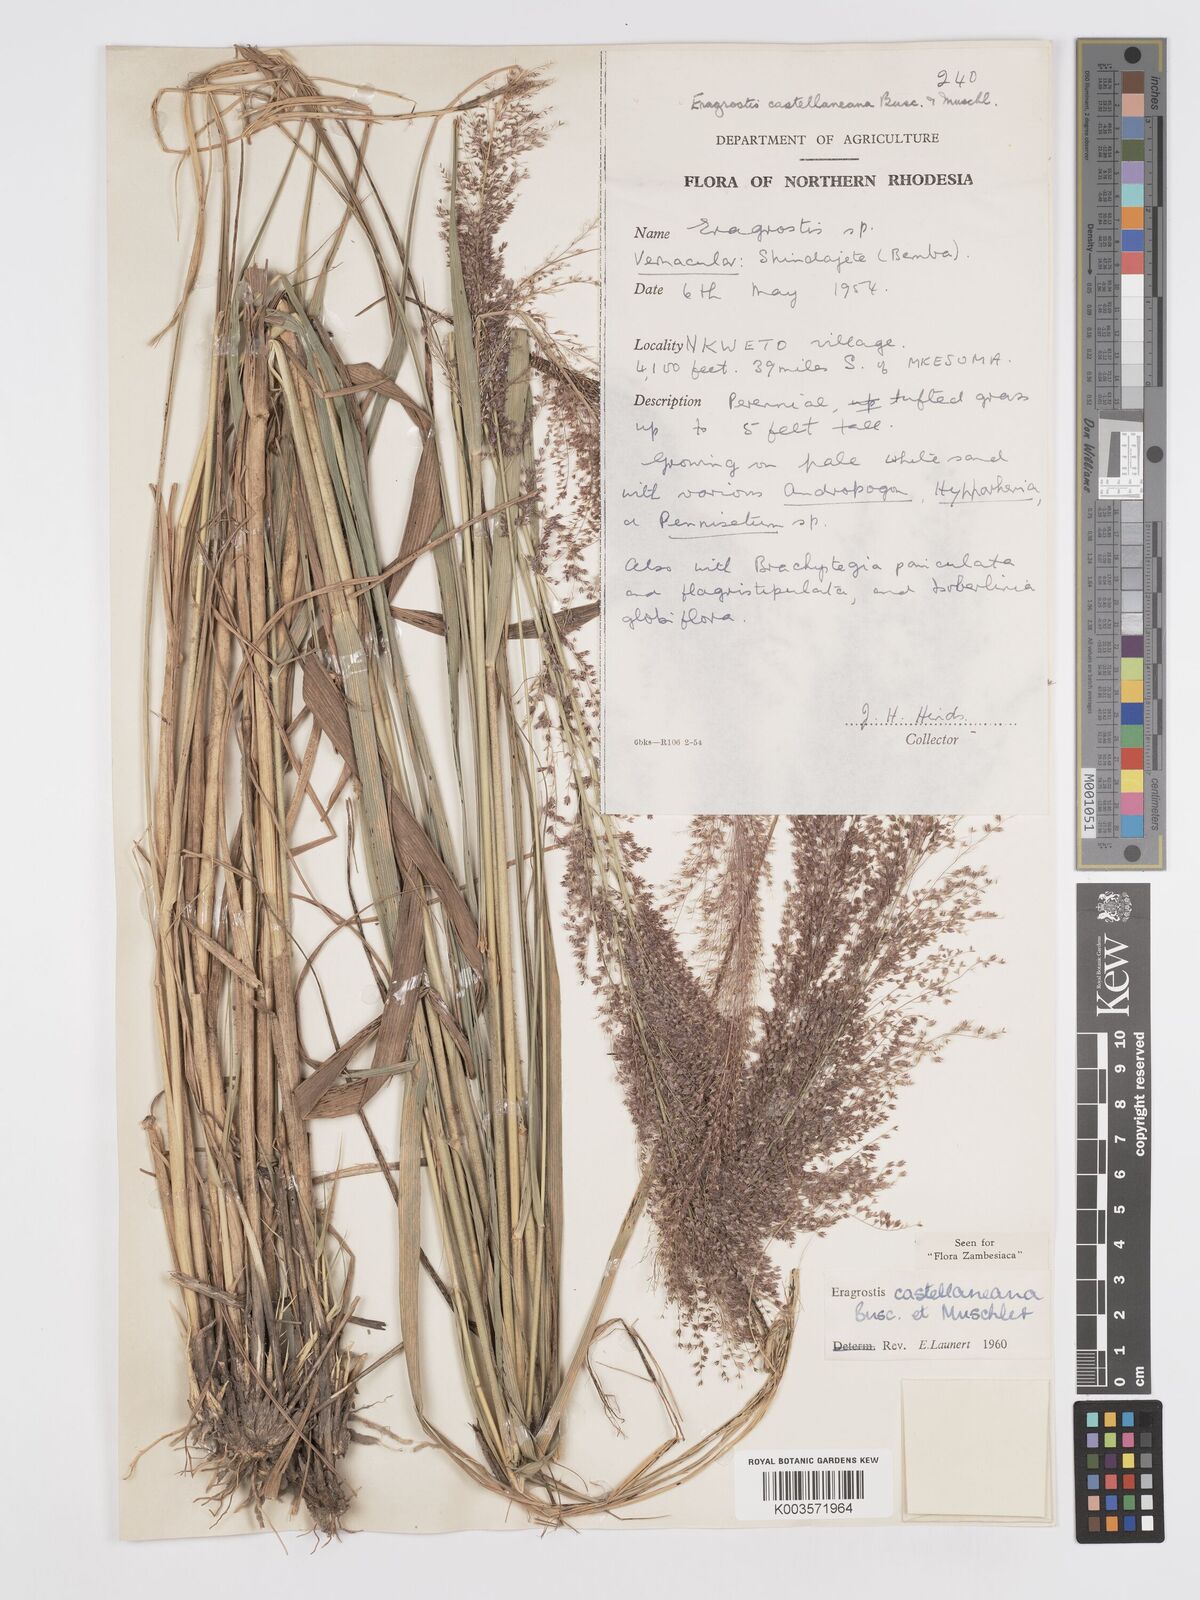 240
Eragrostis castellaneana Busc. & Muschl.
DEPARTMENT OF AGRICULTURE
FLORA OF NORTHERN RHODESIA
Name Eragrostis sp.
Vernacular: Shindajete (Bemba).
Date 6th May 1954.
Locality NKWETO village.
4,100 feet. 39 miles S. of MKESUMA.
Description Perennial, up tufted grass
up to 5 feet tall.
Growing on pale white sand
with various Andropogon, Hypparhenia,
a Pennisetum sp.
Also with Brachystegia paniculata
and flagristipulata, and Isoberlinia
globiflora.
J. H. Hinds
Collector
Gbks—R106 2-54
Seen for
"Flora Zambesiaca"
Eragrostis castellaneana
Busc. et Muschler
Determ. Rev. E. Launert 1960
ROYAL BOTANIC GARDENS KEW
K003571964
inches
centimeters
Density
Don Williams
M001051
Royal Botanic Gardens
Kew
copyright reserved
0 1 2 3 4 5 6 7 8 9 10
cm